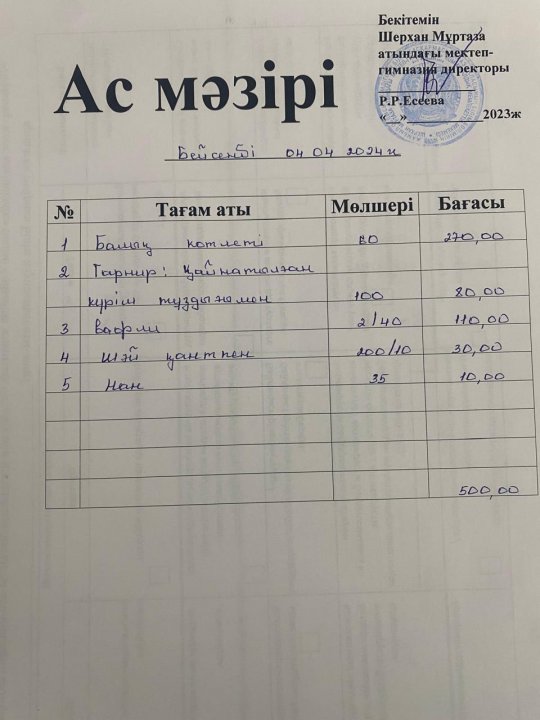 Бекітемін
Шерхан Мұртаза
атындағы мектеп-
гимназия директоры
Р.Р.Есеева
«__»____________2023ж
Ас мәзірі
Бейсенбі 04 04 2024 ж
№ Тағам аты Мөлшері Бағасы
1 Балық котлеті 80 270,00
2 Гарнир: қайнатылған
күріш тұздығымен 100 80,00
3 вафли 2/40 110,00
4 шәй қантпен 200/10 30,00
5 Нан 35 10,00
500,00